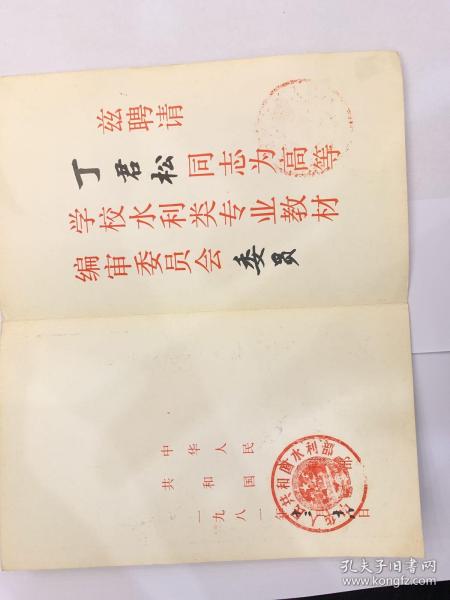 兹聘请
丁君松同志为高等
学校水利类专业教材
编审委员会委员
中华人民
共和国水利部
一九八一年
日
孔夫子旧书网
www.kongfz.com